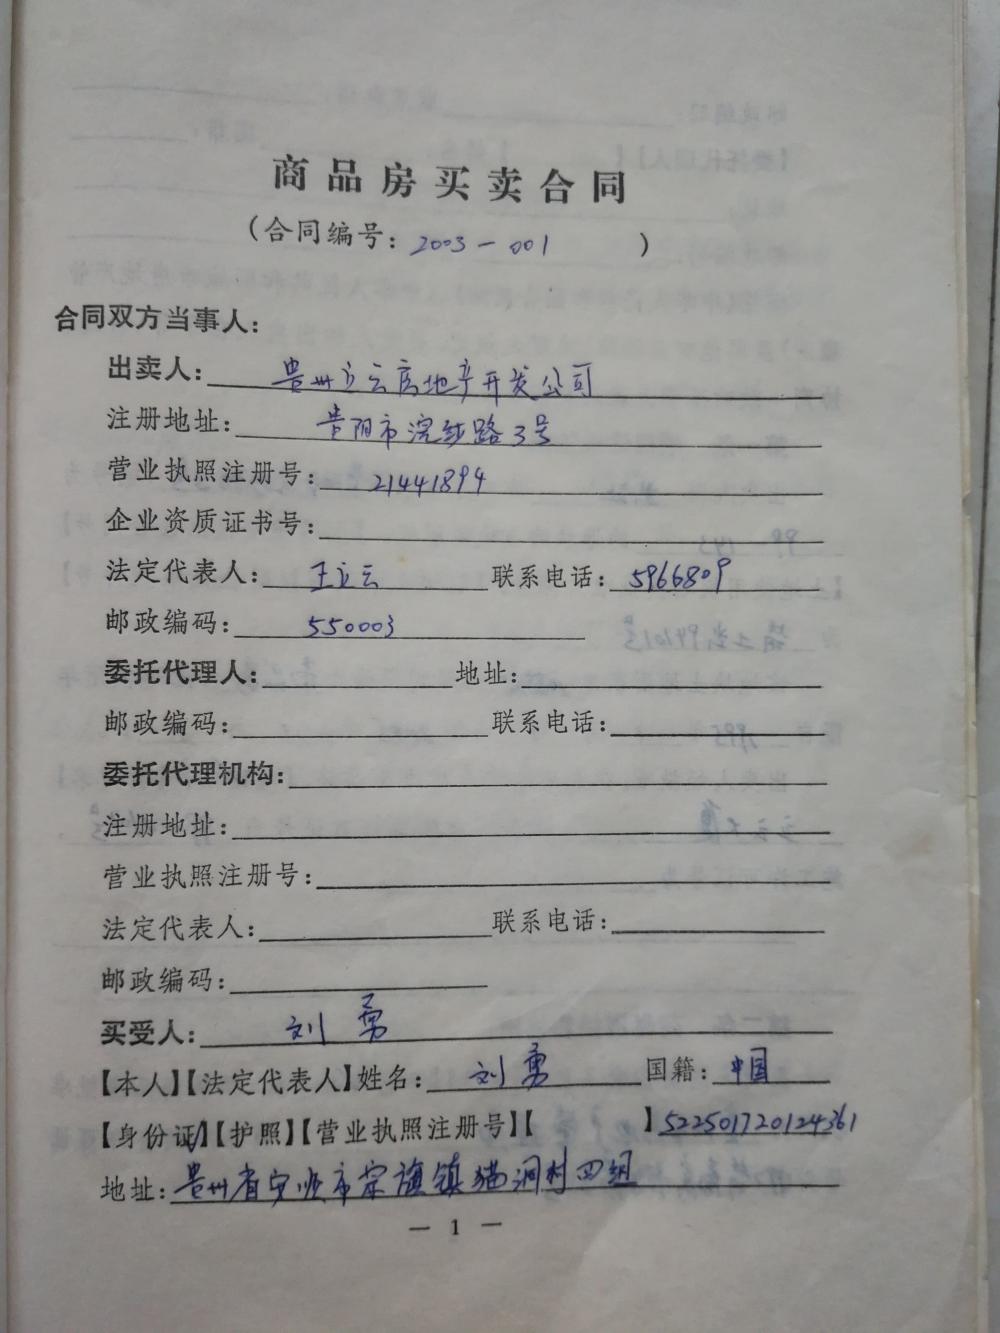 商品房买卖合同
(合同编号: 2003-001 )
合同双方当事人:
出卖人: 贵州立云房地产开发公司
注册地址: 贵阳市浣纱路3号
营业执照注册号: 21441894
企业资质证书号:
法定代表人: 王立云 联系电话: 5966809
邮政编码: 550003
委托代理人: 地址:
邮政编码: 联系电话:
委托代理机构:
注册地址:
营业执照注册号:
法定代表人: 联系电话:
邮政编码:
买受人: 刘勇
【本人】【法定代表人】姓名: 刘勇 国籍: 中国
【身份证】【护照】【营业执照注册号】【 】522501720124361
地址: 贵州省安顺市宋旗镇猫洞村四组
— 1 —